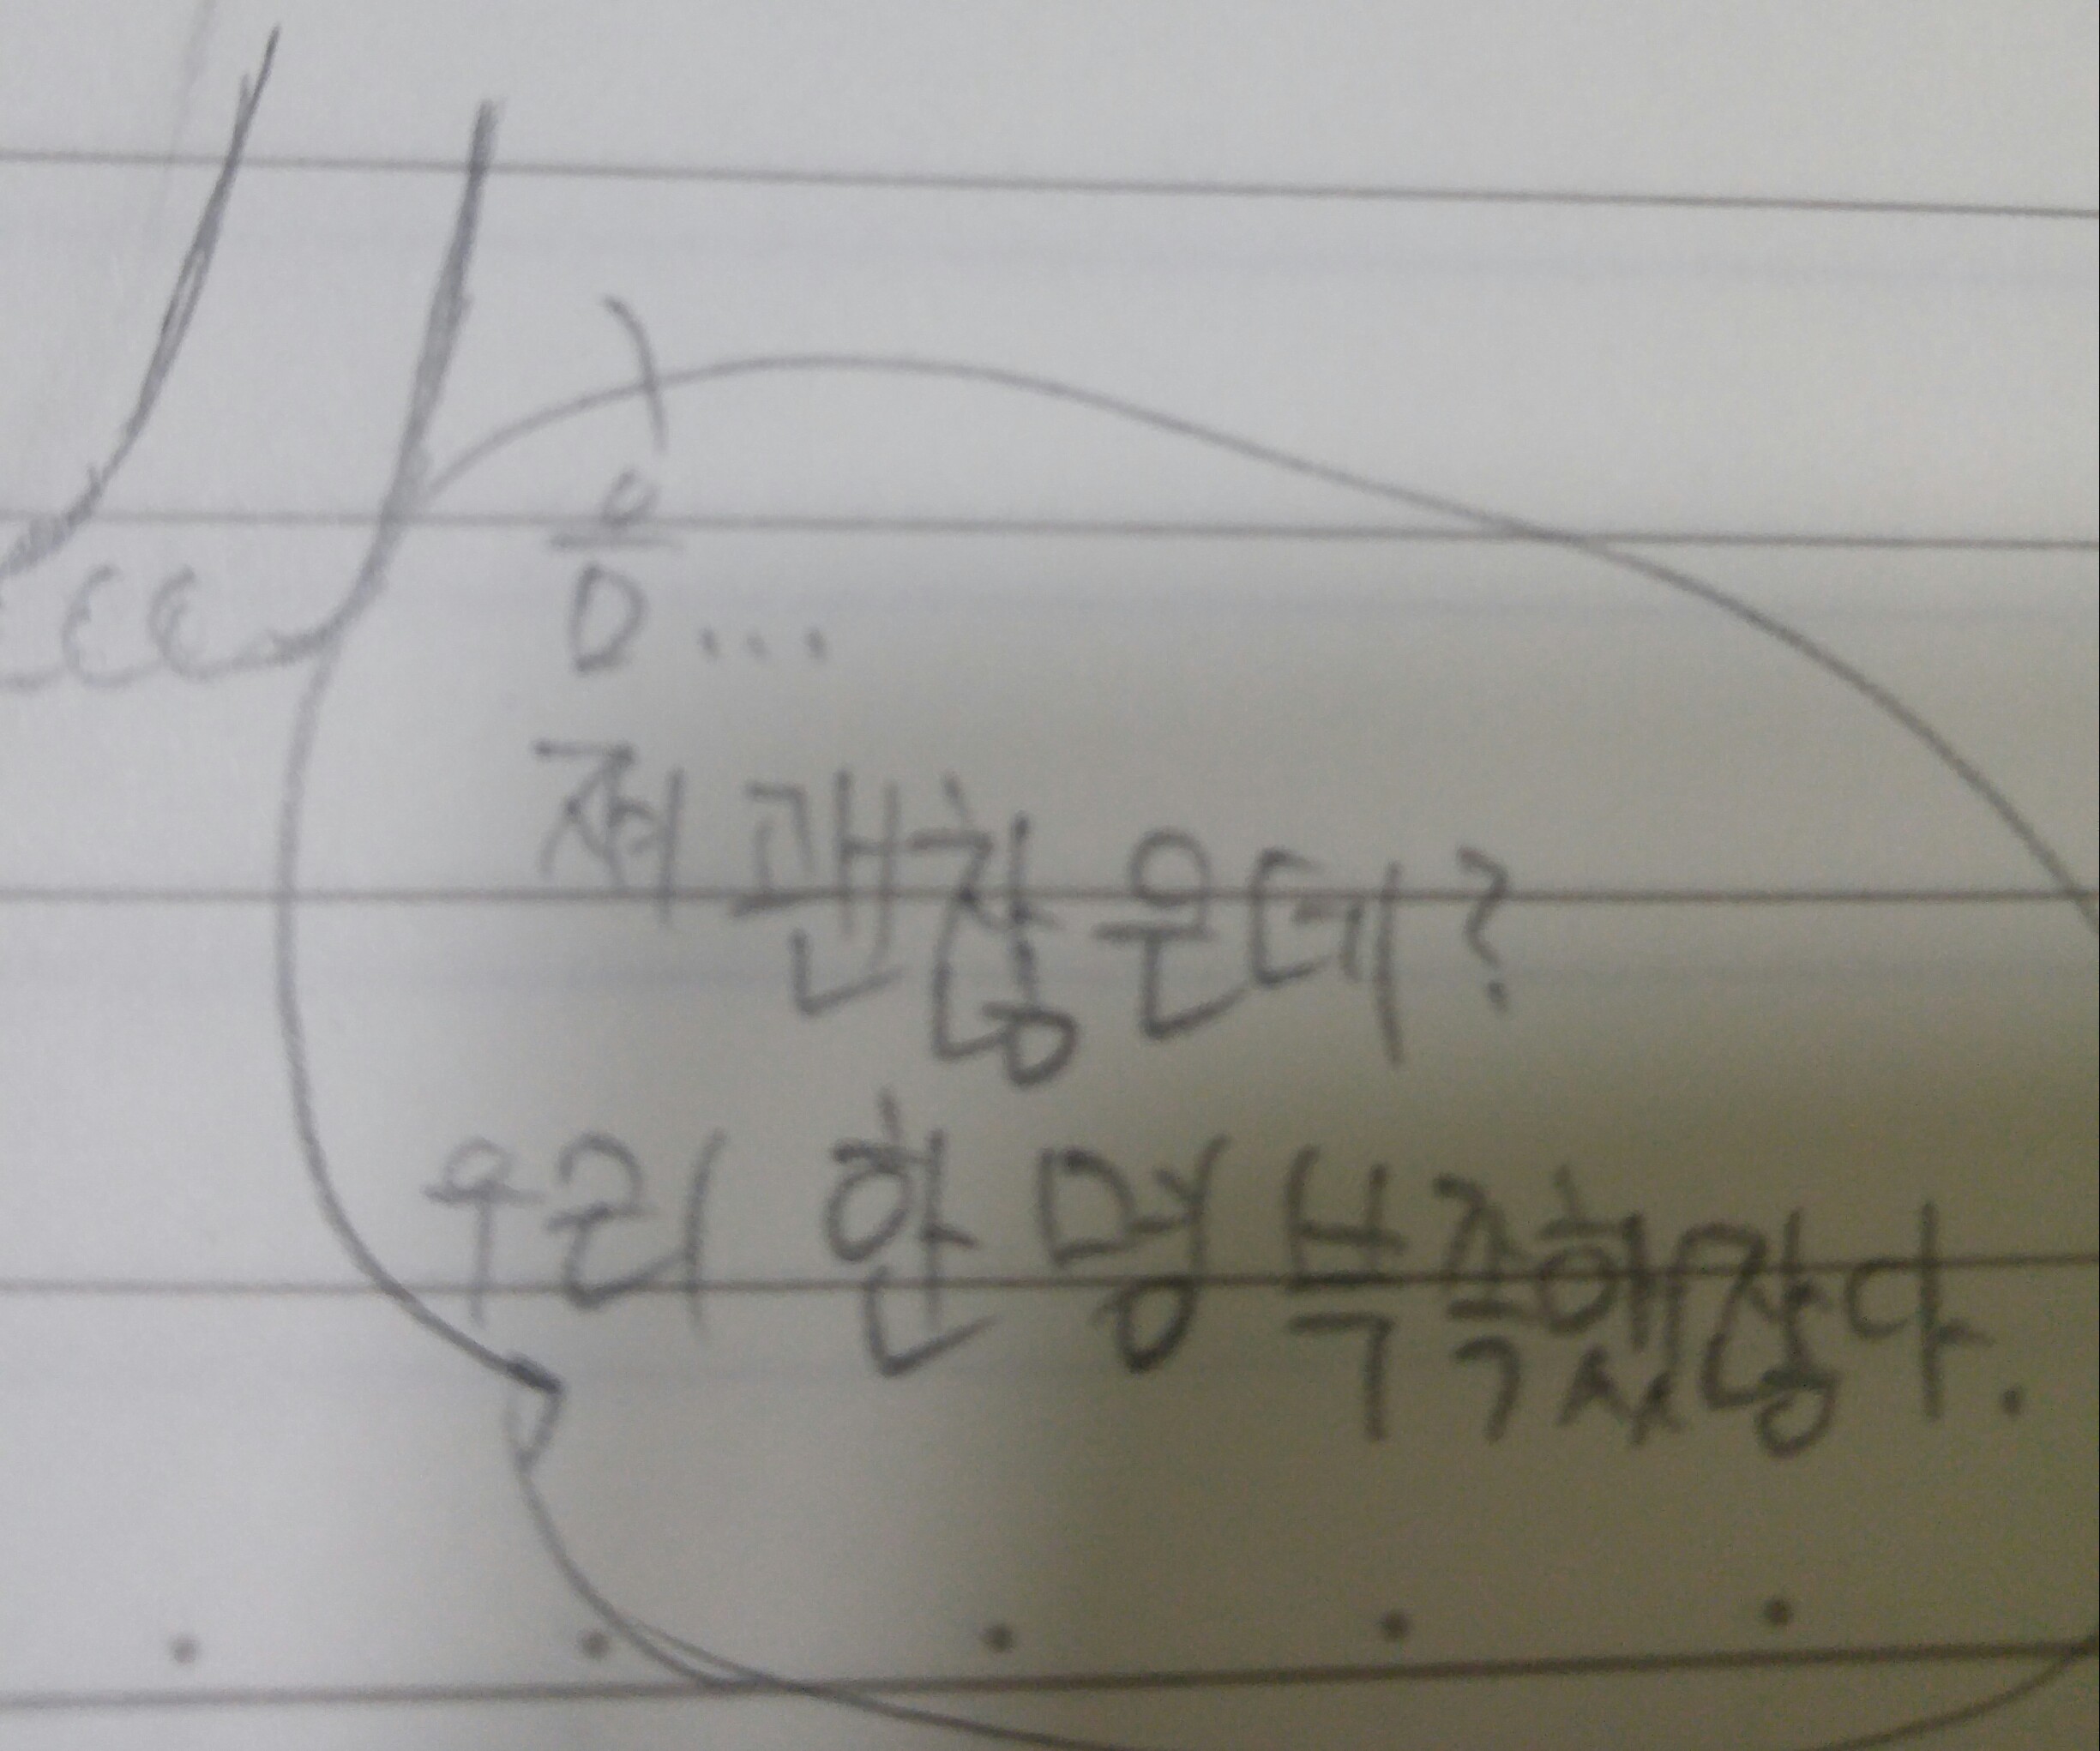 음...
쟤 괜찮은데?
우리 한 명 부족했잖아.